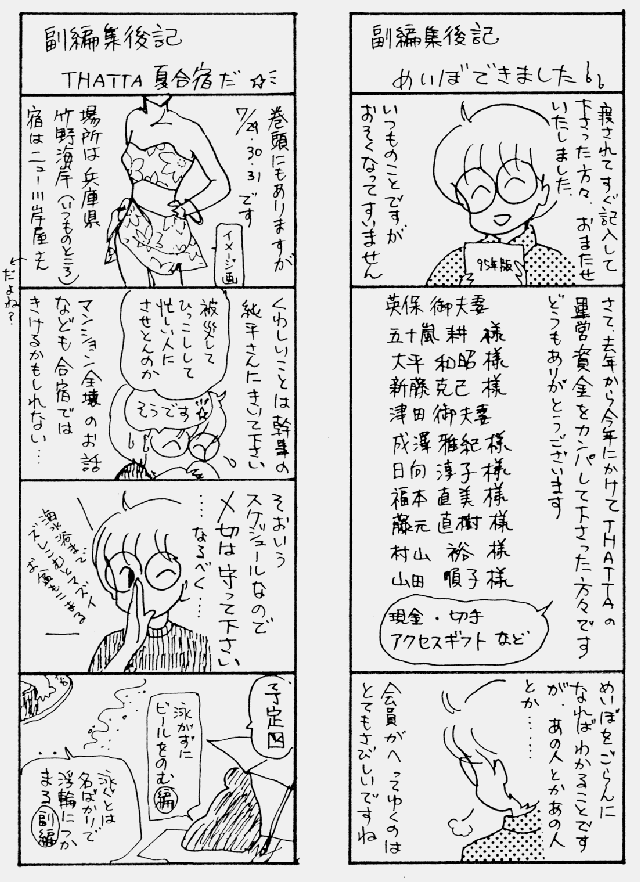 副編集後記
めいぼできました
渡されてすぐ記入して
下さった方々、おまたせ
いたしました。
いつものことですが
おそくなってすいません
95年版
さて、去年から今年にかけてTHATTAの
運営資金をカンパして下さった方々です
どうもありがとうございます
英保 御夫妻
五十嵐 耕 様
大平 和昭 様
新藤 克己 様
津田 御夫妻
成澤 雅紀 様
日向 淳子 様
福本 直美 様
藤元 直樹 様
村山 裕 様
山田 順子 様
現金・切手
アクセスギフト など
めいぼをごらんに
なればわかることです
が、あの人とかあの人
とか……
会員がへってゆくのは
とてもさびしいですね
副編集後記
THATTA 夏合宿だ☆ミ
巻頭にもありますが
7/29・30・31 です
イメージ画
場所は兵庫県
竹野海岸(いつものところ)
宿はニュー川岸屋さん
←だよね?
くわしいことは幹事の
純平さんにきいて下さい
被災して
ひっこしして
忙しい人に
させとんのか
そうです☆
マンション全壊のお話
なども合宿では
きけるかもしれない…
そおいう
スケジュールなので
〆切は守って下さい
…なるべく…
海水浴まで
ズレこむとマズイ
お盆もこまる
予定図
泳がずに
ビールをのむ
編
泳ぐとは
名ばかりで
浮輪につか
まる
副編